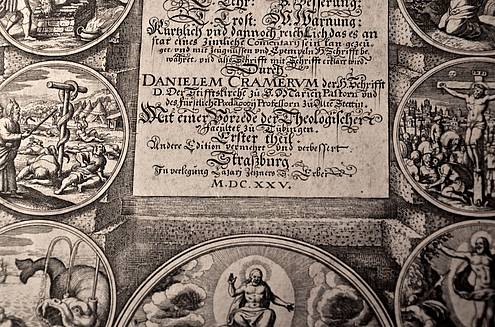 T. Lehr: B. Besserung:
T. Trost. W. Warnung:
Kürtzlich und dannoch reichlich das es an
stat eines zimliche Comentarij sein kan gezeu-
get und mit Zeugnissen und Exempeln H. Schrifft be
währet, und also Schrifft mit Schrifft erklärt wird
Durch
DANIELEM CRAMERVM der H. Schrifft
D. Der Stifftskirche zu S. Marien Pastorn und
des Fürstliche Pædagogij Professorn zu Alte Stettin.
Mit einer Vorrede der Theologischen
Facultet zu Tübingen.
Erster theil.
Andere Edition vermehret und verbessert
Straßburg
In verlegung Lazari Zetzners S. Erben
M.DC.XXV.